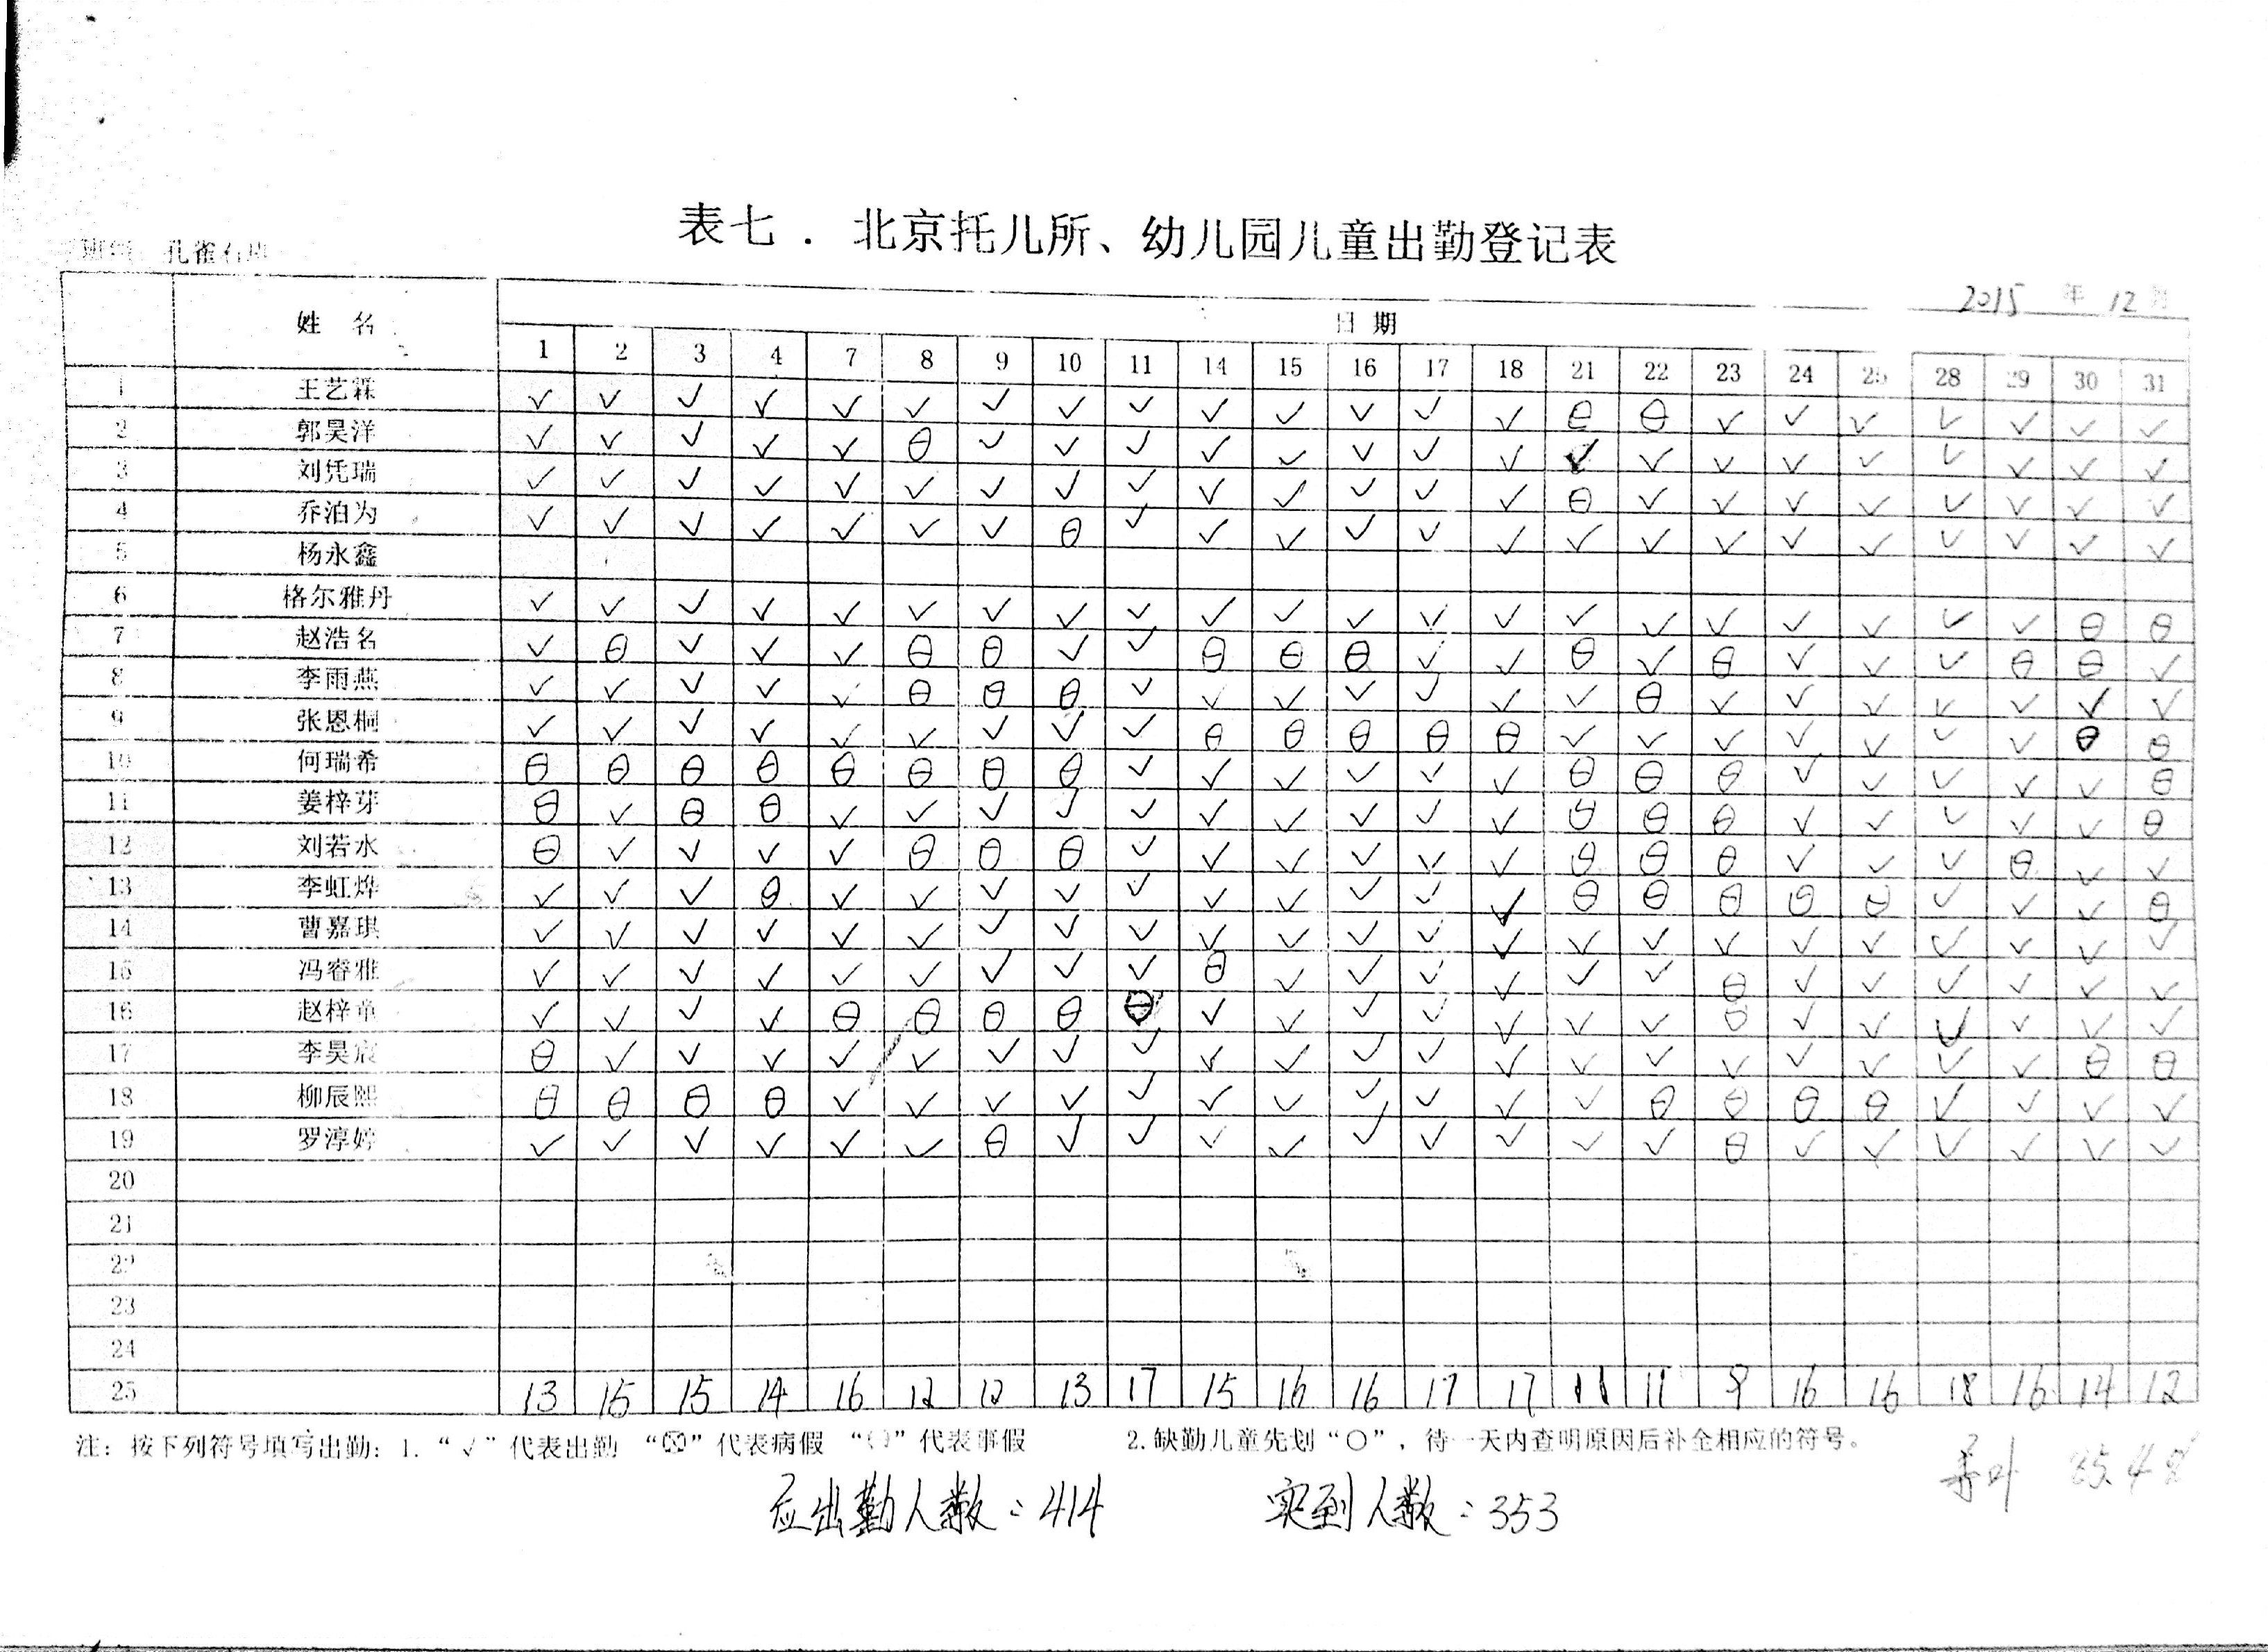 表七．北京托儿所、幼儿园儿童出勤登记表
孔雀石
2015 年 12 月
姓 名 日 期
1 2 3 4 7 8 9 10 11 14 15 16 17 18 21 22 23 24 25 28 29 30 31
1 王艺霖 √ √ √ √ √ √ √ √ √ √ √ √ √ √ ⊖ ⊖ √ √ √ √ √ √ √
2 郭昊洋 √ √ √ √ √ ⊖ √ √ √ √ √ √ √ √ √ √ √ √ √ √ √ √ √
3 刘凭瑞 √ √ √ √ √ √ √ √ √ √ √ √ √ √ ⊖ √ √ √ √ √ √ √ √
4 乔泊为 √ √ √ √ √ √ √ ⊖ √ √ √ √ √ √ √ √ √ √ √ √ √ √ √
5 杨永鑫
6 格尔雅丹 √ √ √ √ √ √ √ √ √ √ √ √ √ √ √ √ √ √ √ √ √ ⊖ ⊖
7 赵浩名 √ ⊖ √ √ √ ⊖ ⊖ √ √ ⊖ ⊖ ⊖ √ √ ⊖ √ ⊖ √ √ √ ⊖ ⊖ √
8 李雨燕 √ √ √ √ √ ⊖ ⊖ ⊖ √ √ √ √ √ √ √ ⊖ √ √ √ √ √ √ √
9 张恩桐 √ √ √ √ √ √ √ √ √ ⊖ ⊖ ⊖ ⊖ ⊖ √ √ √ √ √ √ √ ⊖ ⊖
10 何瑞希 ⊖ ⊖ ⊖ ⊖ ⊖ ⊖ ⊖ ⊖ √ √ √ √ √ √ ⊖ ⊖ ⊖ √ √ √ √ √ ⊖
11 姜梓芽 ⊖ √ ⊖ ⊖ √ √ √ √ √ √ √ √ √ √ ⊖ ⊖ ⊖ √ √ √ √ √ ⊖
12 刘若水 ⊖ √ √ √ √ ⊖ ⊖ ⊖ √ √ √ √ √ √ ⊖ ⊖ ⊖ √ √ √ ⊖ √ √
13 李虹烨 √ √ √ ⊖ √ √ √ √ √ √ √ √ √ √ ⊖ ⊖ ⊖ ⊖ ⊖ √ √ √ ⊖
14 曹嘉琪 √ √ √ √ √ √ √ √ √ √ √ √ √ √ √ √ √ √ √ √ √ √ √
15 冯睿雅 √ √ √ √ √ √ √ √ √ ⊖ √ √ √ √ √ √ ⊖ √ √ √ √ √ √
16 赵梓童 √ √ √ √ ⊖ ⊖ ⊖ ⊖ ⊖ √ √ √ √ √ √ √ ⊖ √ √ √ √ √ √
17 李昊宸 ⊖ √ √ √ √ √ √ √ √ √ √ √ √ √ √ √ √ √ √ √ √ ⊖ ⊖
18 柳辰熙 ⊖ ⊖ ⊖ ⊖ √ √ √ √ √ √ √ √ √ √ √ ⊖ ⊖ ⊖ ⊖ √ √ √ √
19 罗淳婷 √ √ √ √ √ √ ⊖ √ √ √ √ √ √ √ √ √ ⊖ √ √ √ √ √ √
20
21
22
23
24
25 13 15 15 14 16 12 12 13 17 15 16 16 17 17 11 11 9 16 16 18 16 14 12
注：按下列符号填写出勤：1. “√”代表出勤 “⊗”代表病假 “〇”代表事假 2.缺勤儿童先划“〇”，待一天内查明原因后补全相应的符号。
应出勤人数：414 实到人数：353